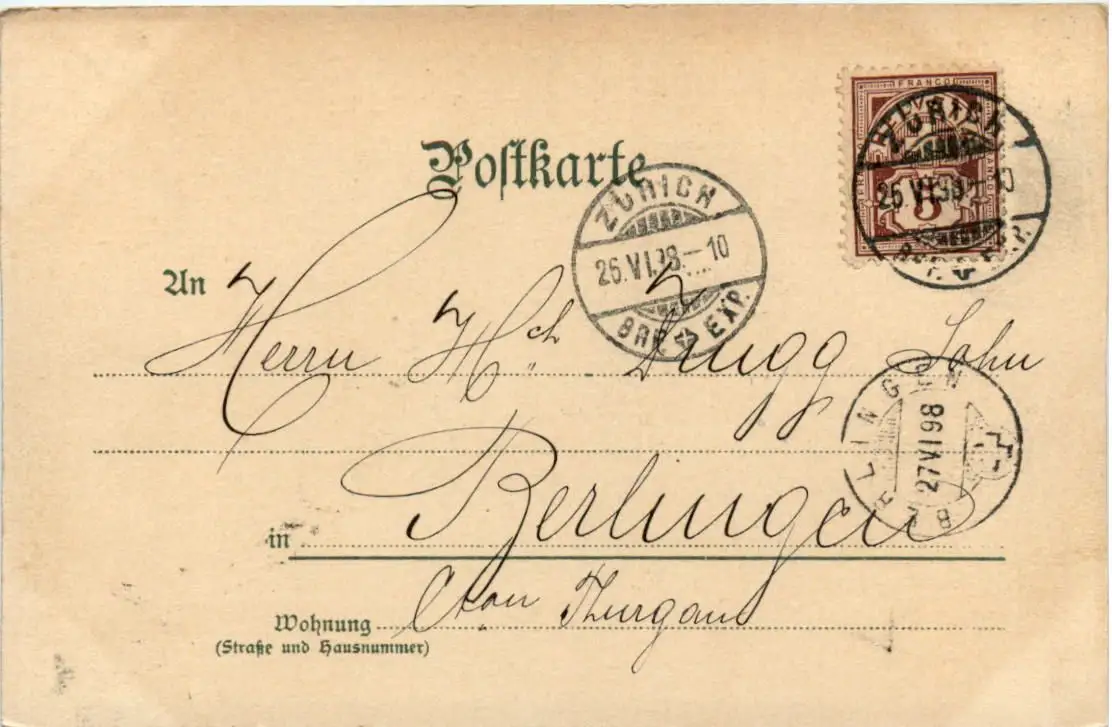 Postkarte
FRANCO
HELVETIA
5
ZÜRICH
26.VI.98.-10
BRF. EXP.
ZÜRICH
26.VI.98.-10
BRF. EXP.
An Herrn Hch. Sohn
BERLINGEN
27 VI 98
in Berlingen
Wohnung Cton Thurgau
(Straße und Hausnummer)